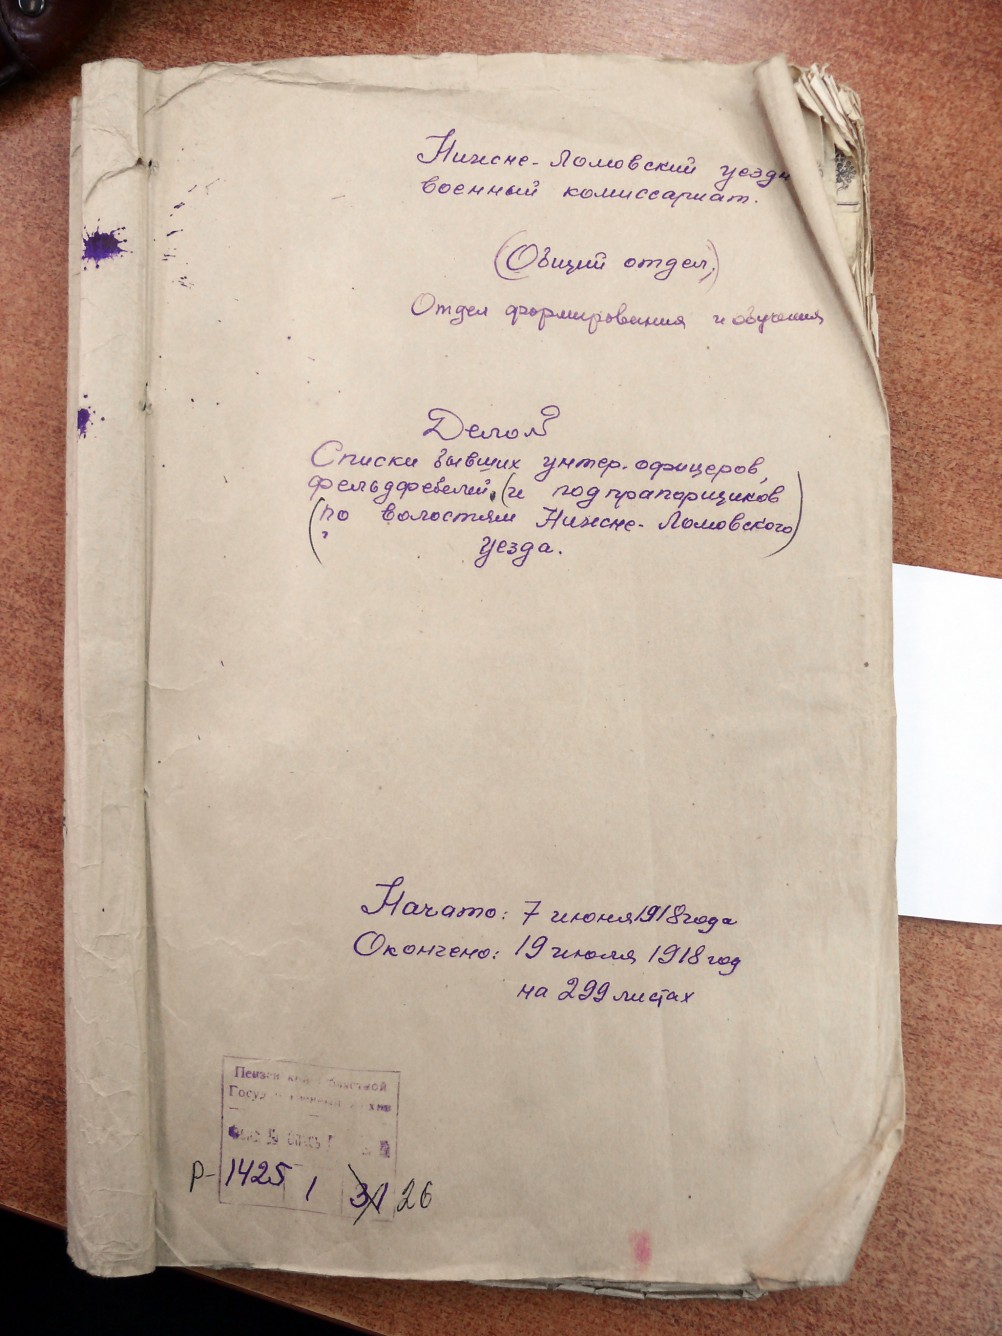 Нижне-Ломовский уездн
военный комиссариат.
(Общий отдел,)
Отдел формирования и обучения
Дело №
Списки бывших унтер-офицеров,
фельдфебелей, (и подпрапорщиков
(по волостям Нижне-Ломовского)
уезда.
Начато: 7 июня 1918 года
Окончено: 19 июля 1918 год
на 299 листах
Пензен
Госуд
Р-1425 1 31 26